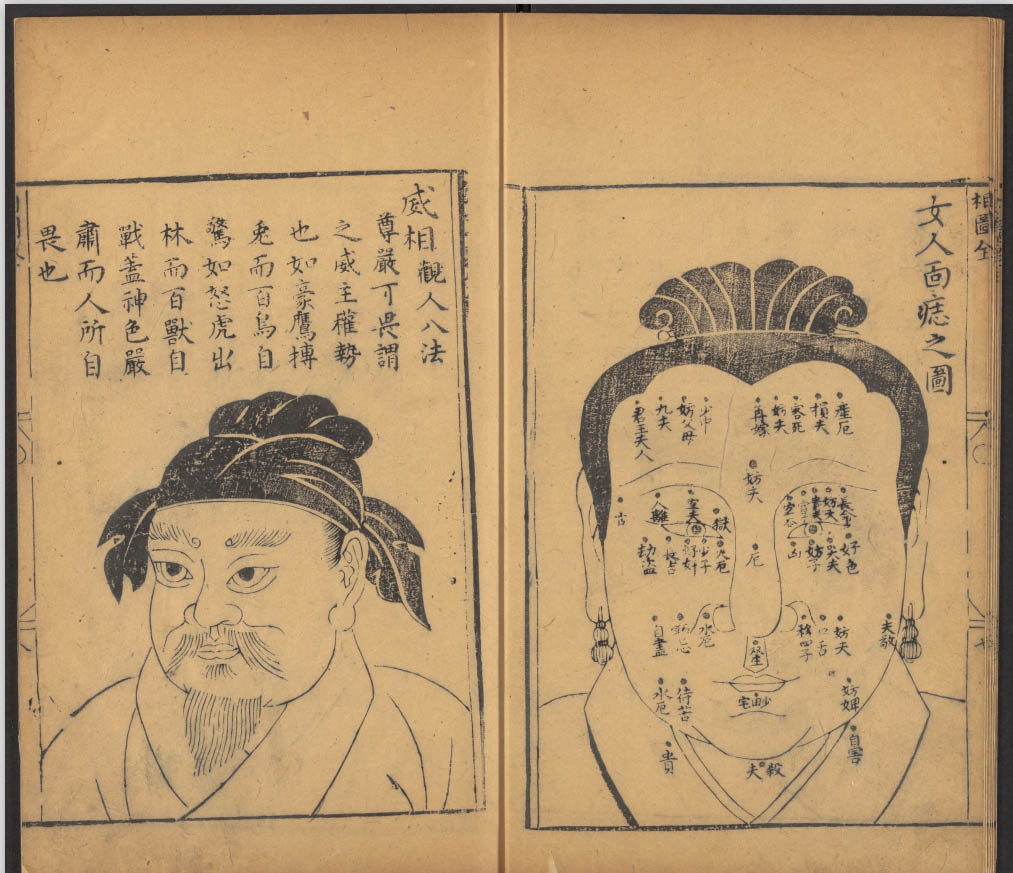 相圖全
女人面痣之圖
產厄
損夫
客死
妨夫
再嫁
少巾
妨父母
九夫
君王夫人
妨夫
長命
妨夫
妨夫
好色
哭夫
妨子
凶
厄
獄
害夫
八離
古
九厄
少子
好奸
劫盜
妨夫
口舌
移四子
夫敬
雙生
水厄
自盡
妨婢
少田宅
侍苦
水厄
自害
殺夫
貴
威相觀人八法
尊嚴可畏謂
之威主權勢
也如豪鷹摶
兔而百鳥自
驚如怒虎出
林而百獸自
戰蓋神色嚴
肅而人所自
畏也